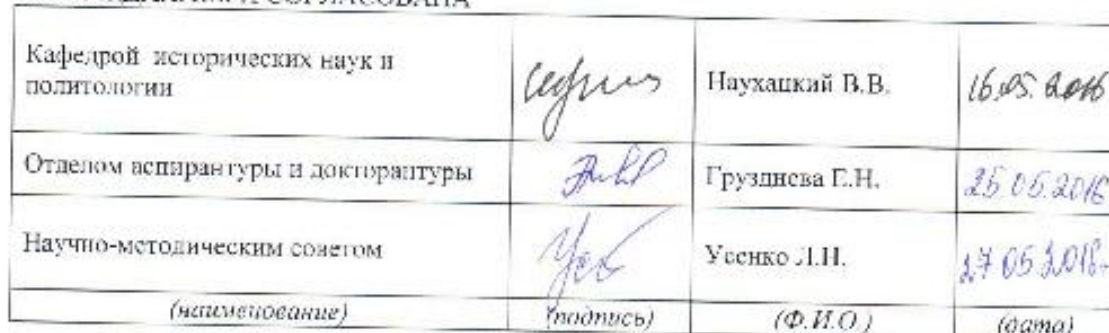 И СОГЛАСОВАНА
Кафедрой исторических наук и
политологии
Наухацкий В.В.
16.05.2016
Отделом аспирантуры и докторантуры
Грузднева Е.Н.
25.05.2016
Научно-методическим советом
Усенко Л.Н.
27.05.2016
(наименование)
(подпись)
(Ф.И.О.)
(дата)